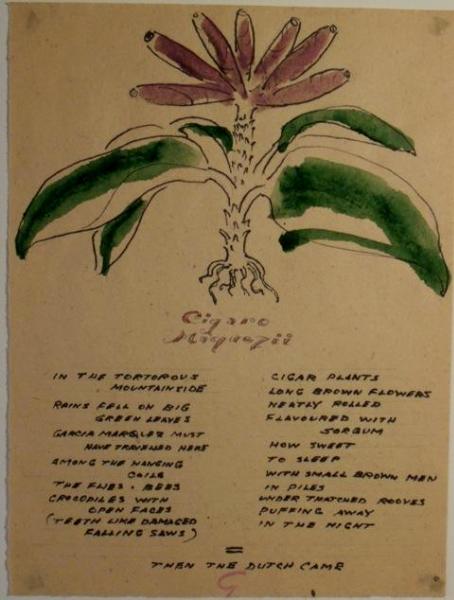 Cigaro
Maquezii
IN THE TORTOROUS
MOUNTAINSIDE
RAINS FELL ON BIG
GREEN LEAVES
GARCIA MARQUEZ MUST
HAVE TRAVELLED HERE
AMONG THE HANGING
COILS
THE FLIES • BEES
CROCODILES WITH
OPEN FACES
(TEETH LIKE DAMAGED
FALLING SAWS)
CIGAR PLANTS
LONG BROWN FLOWERS
NEATLY ROLLED
FLAVOURED WITH
SORGUM
HOW SWEET
TO SLEEP
WITH SMALL BROWN MEN
IN PILES
UNDER THATCHED ROOVES
PUFFING AWAY
IN THE NIGHT
=
THEN THE DUTCH CAME
G